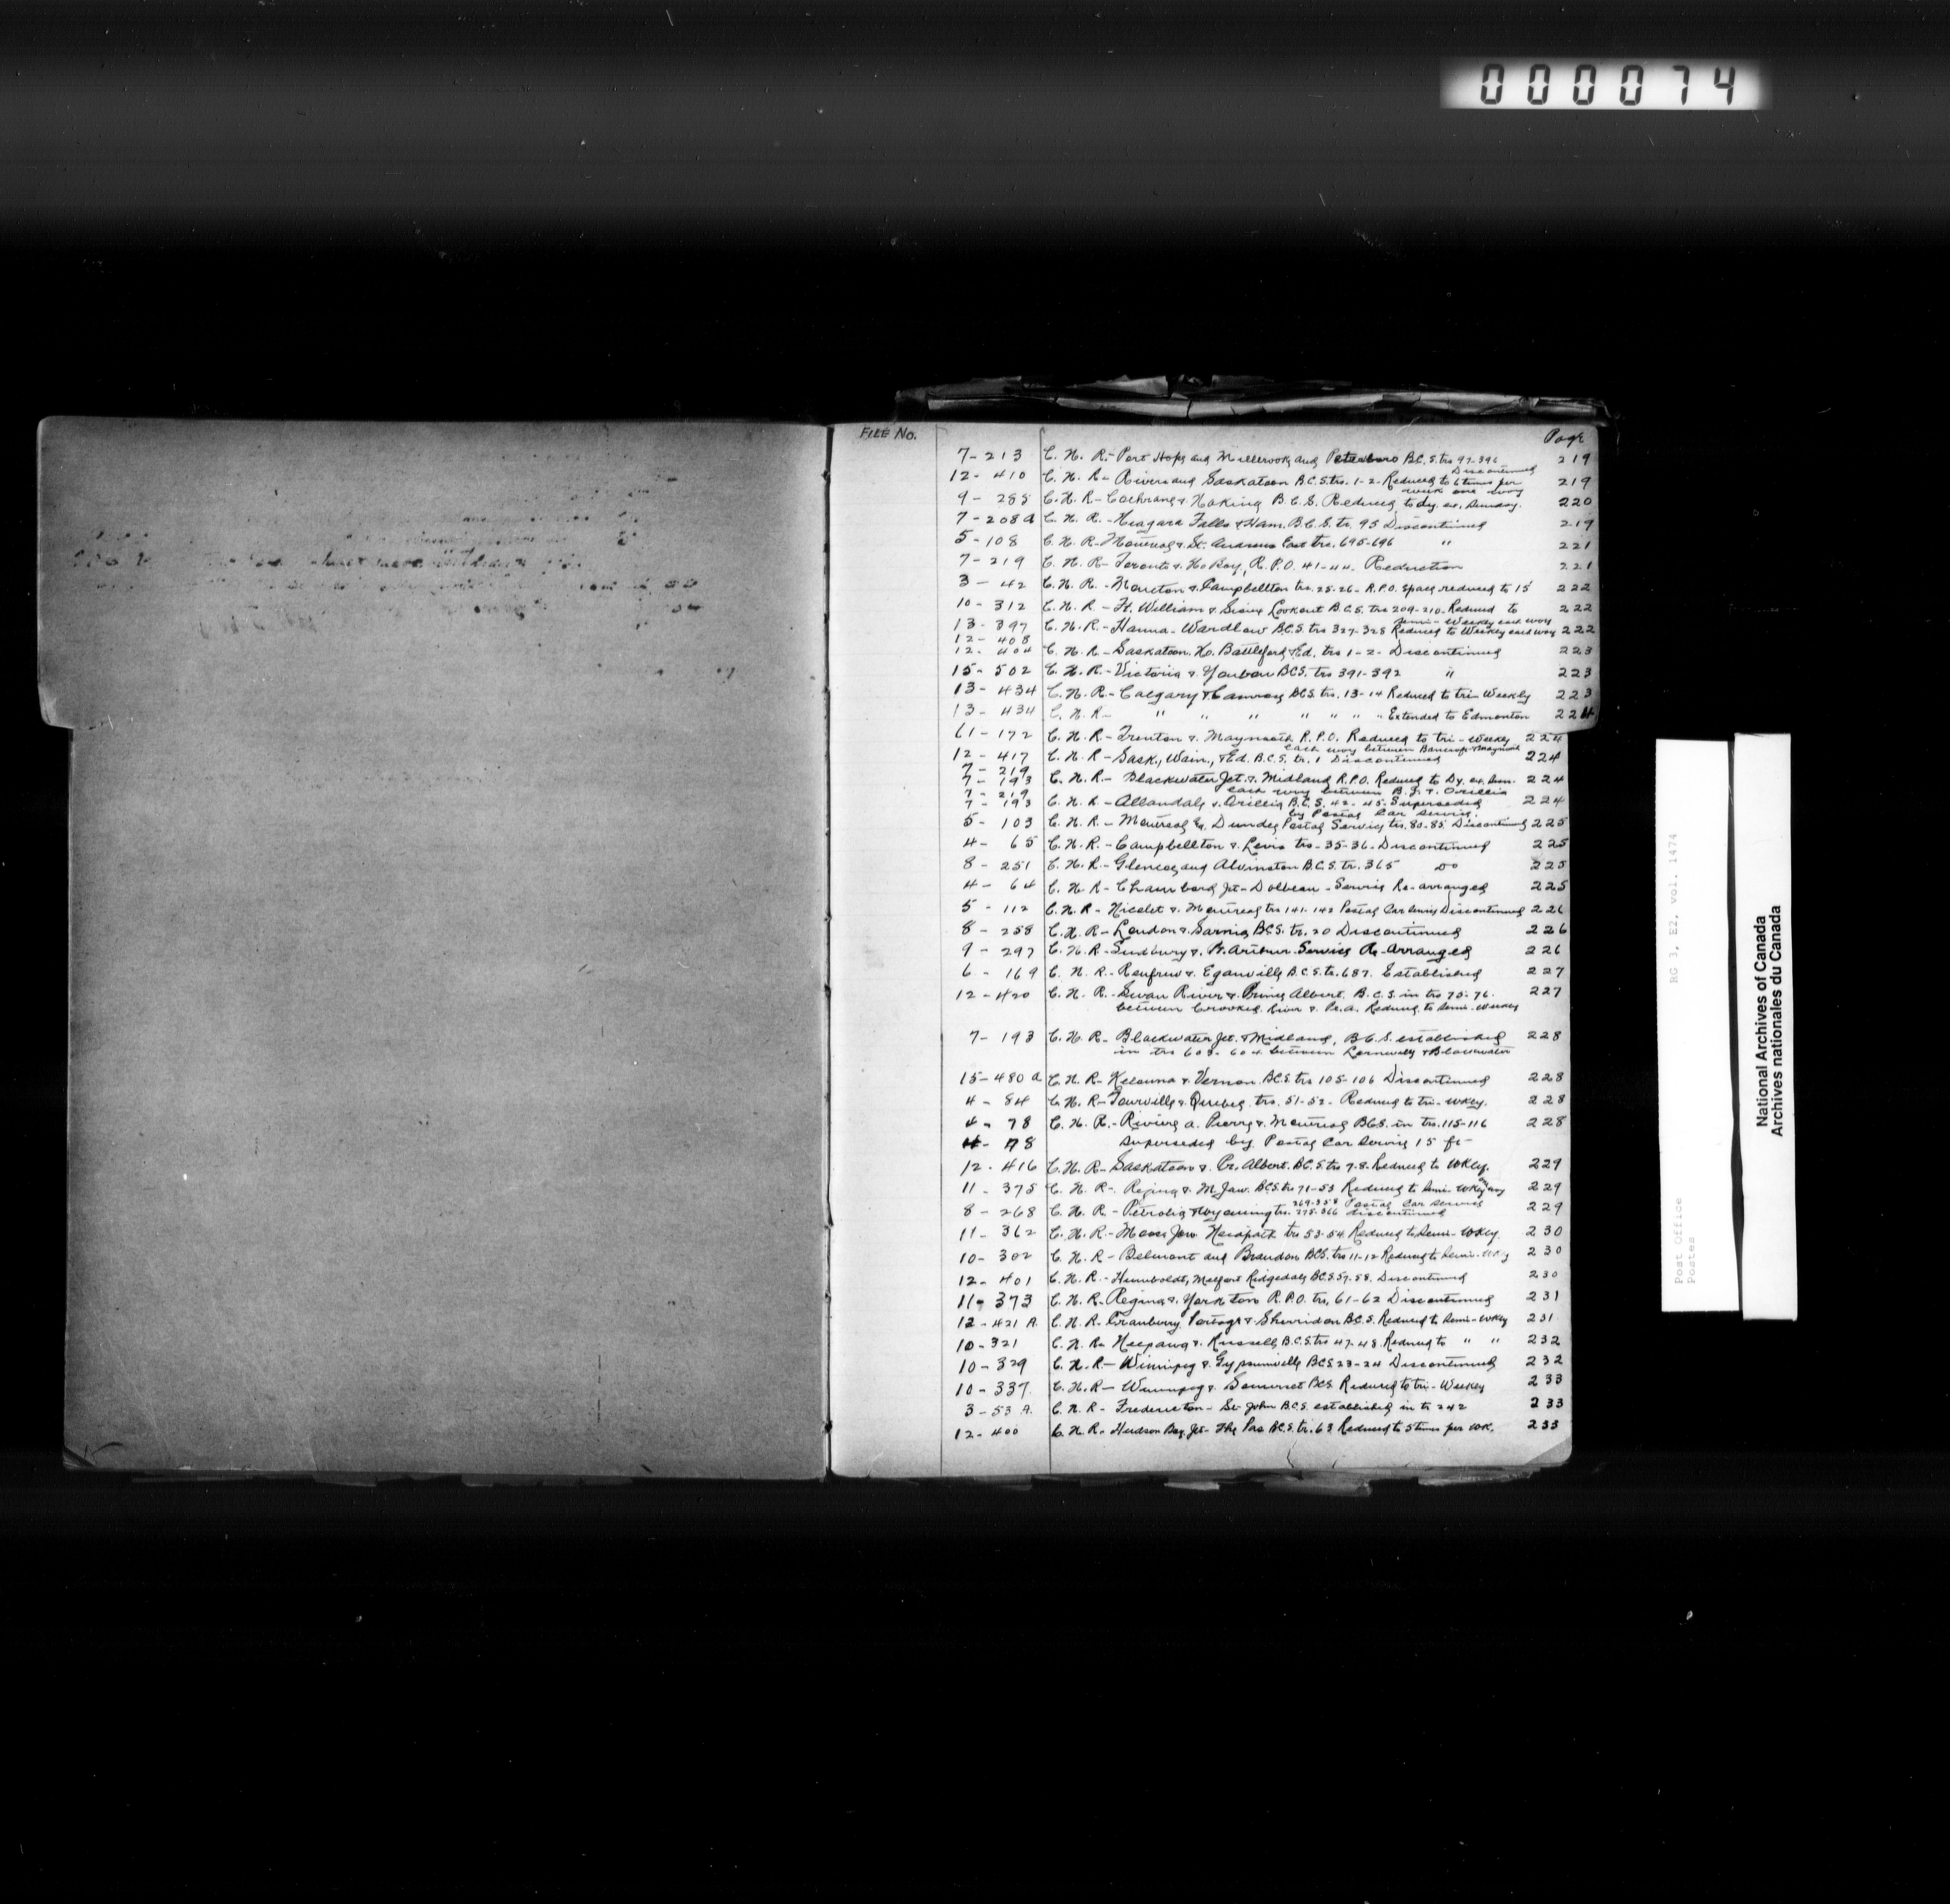 000074
FILE No. Page
7-213 C. N. R.- Port Hope and Millbrook and Peterboro B.C.S. trs 97-396 219
Discontinued
12-410 C. N. R- Rivers and Saskatoon B.C.S. trs. 1-2- Reduced to 6 times per 219
week one way
9-285 C. N. R- Cochrane & Nakina B.C.S. Reduced to dy. ex. Sunday. 220
7-208A C. N. R.- Niagara Falls & Ham. B.C.S. tr. 95 Discontinued 219
5-108 C. N. R- Montreal & St. Andrews East trs. 695-696 " 221
7-219 C. N. R- Toronto & No Bay, R.P.O. 41-44. Reduction 221
3-42 C. N. R.- Moncton & Campbellton trs. 25-26- R.P.O. space reduced to 15' 222
10-312 C. N. R- Ft. William & Sioux Lookout B.C.S. trs 209-210- Reduced to 222
Semi-Weekly each way
13-397 C. N. R.- Hanna-Wardlow B.C.S. trs 327-328 Reduced to Weekly each way 222
12-408
12-404 C. N. R- Saskatoon, No. Battleford & Ed. trs 1-2- Discontinued 223
15-502 C. N. R.- Victoria & Youbou B.C.S. trs 391-392 " 223
13-434 C. N. R.- Calgary & Camrose B.C.S. trs. 13-14 Reduced to tri-Weekly 223
13-434 C. N. R- " " " " " " " Extended to Edmonton 224
61-172 C. N. R- Trenton & Maynooth R.P.O. Reduced to tri-Weekly 224
each way between Bancroft & Maynooth
12-417 C. N. R- Sask., Wain., & Ed. B.C.S. tr. 1 Discontinued 224
7-219
7-193 C. N. R.- Blackwater Jct. & Midland R.P.O. Reduced to Dy. ex. Sun. 224
each way between B.J. & Orillia
7-219
7-193 C. N. R- Allandale & Orillia B.C.S. 42-45- Superseded 224
by Postal Car Service.
5-103 C. N. R.- Montreal & Dundee Postal Service trs. 80-85 Discontinued 225
4-65 C. N. R.- Campbellton & Levis trs-35-36- Discontinued 225
8-251 C. N. R- Glencoe and Alvinston B.C.S. tr. 365 do 225
4-64 C. N. R- Chambord Jct-Dolbeau-Service Re-arranged 225
5-112 C. N. R- Nicolet & Montreal trs 141-142 Postal Car Service Discontinued 226
8-258 C. N. R- London & Sarnia B.C.S. tr. 20 Discontinued 226
9-297 C. N. R- Sudbury & Pt. Arthur Service Re-arranged 226
6-169 C. N. R- Renfrew & Eganville B.C.S. tr. 687. Established 227
12-420 C. N. R.- Swan River & Prince Albert. B.C.S. in trs 75-76- 227
between Crooked River & Pr. A. Reduced to Semi-Weekly
7-193 C. N. R- Blackwater Jct. & Midland, B.C.S. established 228
in trs 603-604 between Lorneville & Blackwater
15-480A C. N. R- Kelowna & Vernon B.C.S. trs 105-106 Discontinued 228
4-84 C. N. R- Tourville & Quebec trs. 51-52- Reduced to tri-wkly. 228
4-78 C. N. R.- Riviere a. Pierre & Montreal B.C.S. in trs. 115-116 228
4-78 Superseded by Postal Car Service 15 ft-
12-416 C. N. R- Saskatoon & Pr. Albert. B.C.S. trs 7-8. Reduced to Wkly. 229
11-375 C. N. R- Regina & M. Jaw. B.C.S. trs 71-53 Reduced to Semi-Wkly one way 229
8-268 C. N. R- Petrolia & Wyoming trs. 269-358 275-366 Postal Car Service discontinued 229
11-362 C. N. R.- Moose Jaw Neidpath trs 53-54 Reduced to Semi-Wkly. 230
10-302 C. N. R- Belmont and Brandon B.C.S. trs 11-12 Reduced to Semi-Wkly 230
12-401 C. N. R.- Humboldt, Melfort Ridgedale B.C.S. 57-58. Discontinued 230
11-373 C. N. R- Regina & Yorkton R.P.O. trs, 61-62 Discontinued 231
12-421A. C. N. R- Cranberry Portage & Sherridon B.C.S. Reduced to Semi-Wkly 231
10-321 C. N. R- Neepawa & Russell B.C.S. trs 47-48 Reduced to " " 232
10-329 C. N. R- Winnipeg & Gypsumville B.C.S. 23-24 Discontinued 232
10-337. C. N. R- Winnipeg & Somerset B.C.S. Reduced to tri-Weekly 233
3-53 A. C. N. R- Fredericton- St. John B.C.S. established in tr 242 233
12-400 C. N. R- Hudson Bay Jct- The Pas B.C.S. tr. 63 Reduced to 5 times per wk. 233
RG 3, E2, vol. 1474
Post Office
Postes
National Archives of Canada
Archives nationales du Canada